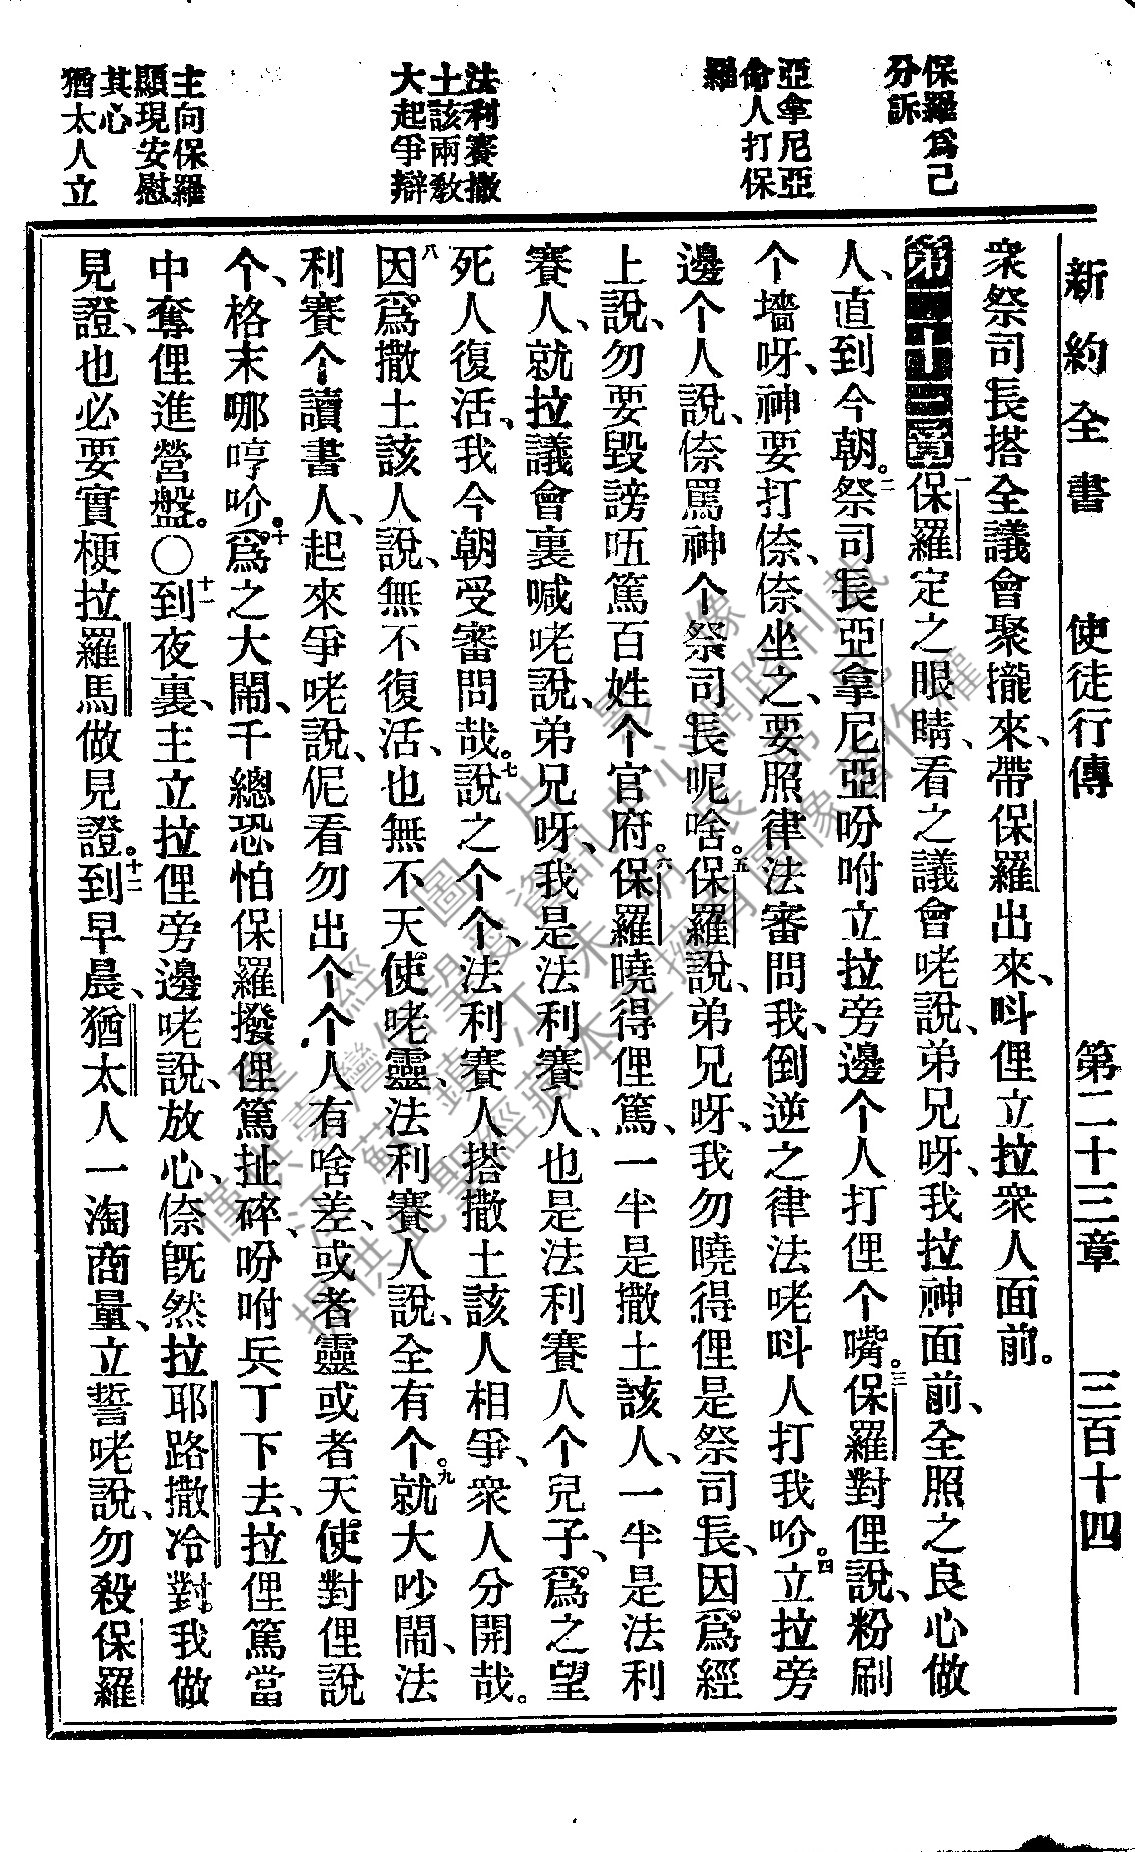 新約全書 使徒行傳 第二十三章 三百十四
保羅爲己
分訴
亞拿尼亞
命人打保
羅
法利賽撒
土該兩教
大起爭辯
主向保羅
顯現安慰
其心
猶太人立
衆祭司長搭全議會聚攏來、帶保羅出來、呌俚立拉衆人面前。
第二十三章 一保羅定之眼睛、看之議會咾說、弟兄呀、我拉神面前、全照之良心做
人、直到今朝。二祭司長亞拿尼亞吩咐立拉旁邊个人打俚个嘴。三保羅對俚說、粉刷
个墻呀、神要打倷、倷坐之、要照律法審問我、倒逆之律法咾呌人打我吤。四立拉旁
邊个人說、倷罵神个祭司長呢啥。五保羅說、弟兄呀、我勿曉得俚是祭司長、因爲經
上說、勿要毀謗㕶篤百姓个官府。六保羅曉得俚篤、一半是撒土該人、一半是法利
賽人、就拉議會裏喊咾說、弟兄呀、我是法利賽人、也是法利賽人个兒子、爲之望
死人復活、我今朝受審問哉。七說之个个、法利賽人搭撒土該人相爭、衆人分開哉。
八因爲撒土該人說、無不復活、也無不天使咾靈、法利賽人說、全有个。九就大吵鬧、法
利賽个讀書人、起來爭咾說、伲看勿出个个人有啥差、或者靈或者天使對俚說
个、格末哪哼吤。十爲之大鬧、千總恐怕保羅撥俚篤扯碎、吩咐兵丁下去、拉俚篤當
中奪俚進營盤。〇十一到夜裏、主立拉俚旁邊咾說、放心、倷旣然拉耶路撒冷對我做
見證、也必要實梗拉羅馬做見證。十二到早晨、猶太人一淘商量、立誓咾說、勿殺保羅